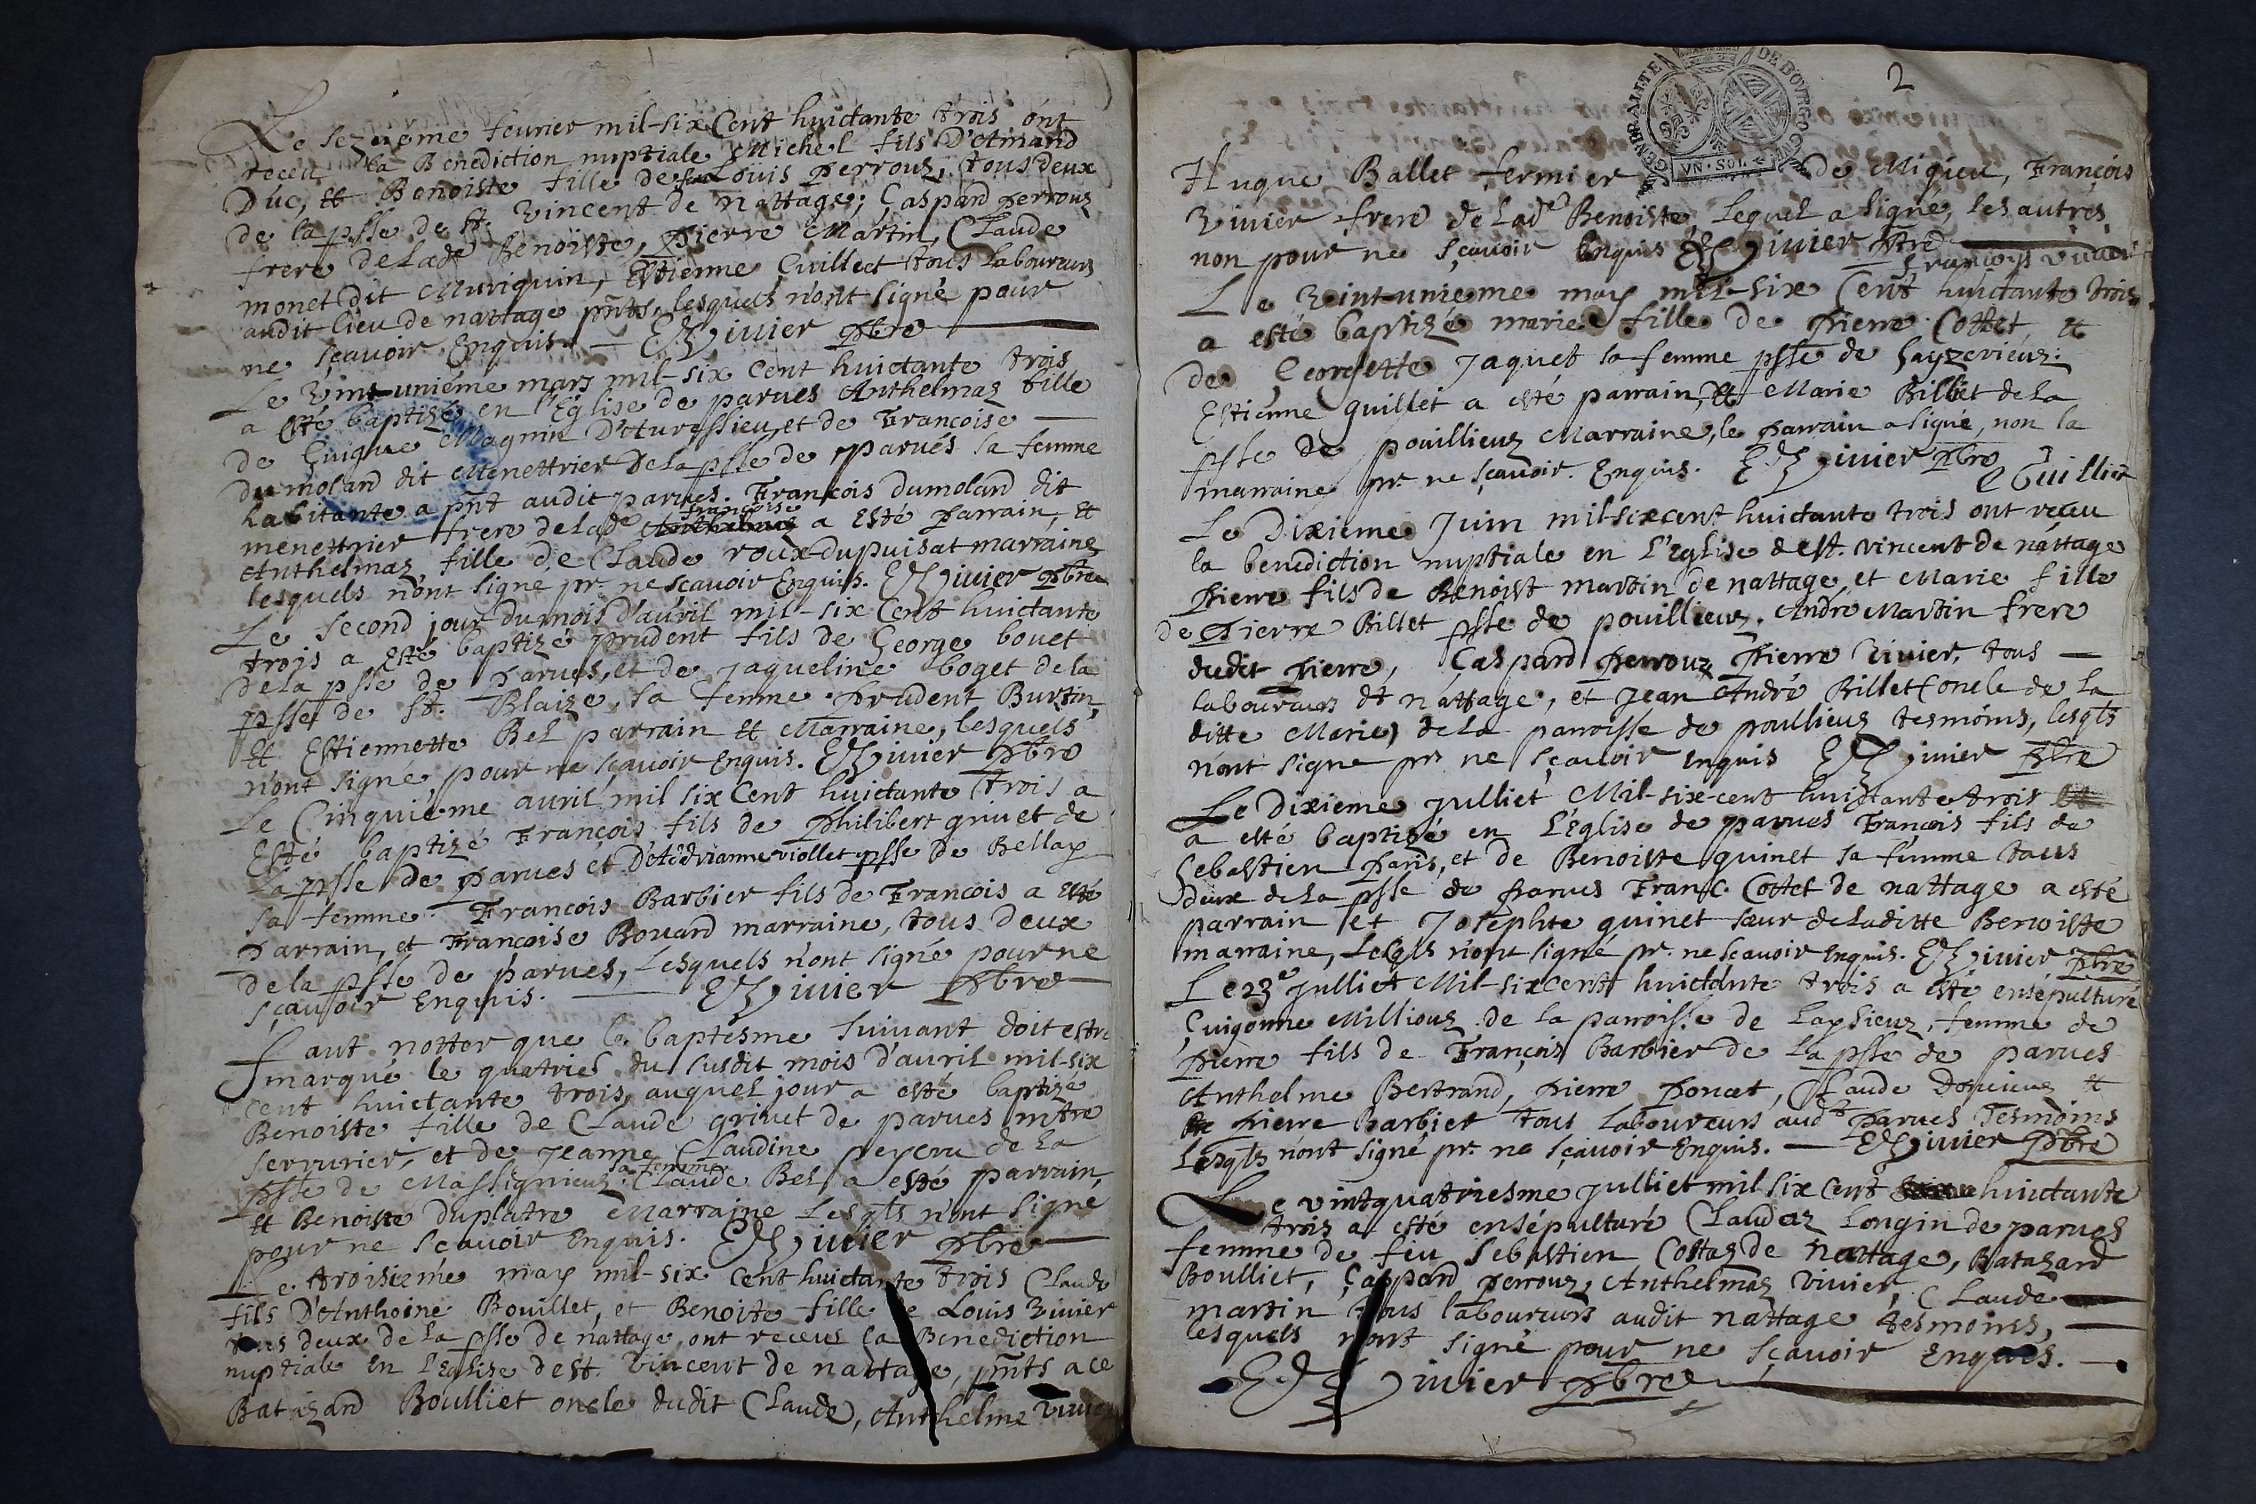 Le sezieme feurier mil-six Cent huictante trois ont
receu la Benediction nuptiale Michel fils D'Amand
Duc, et Benoiste fille de feu Louis perrouz, tous deux
de la psse de St. Vincent de nattage, Gaspard perrouz
frere de lade Benoiste, pierre Martin, Claude
monet dit Muriquin, Estienne Guilliet tous laboureurs
audit lieu de nattage pnts, lesquels n'ont signé pour
ne sçauoir Enquis. — Viuier pbre
Le Vint-unieme mars mil-six cent huictante trois
a esté baptizé en l'Eglise de parues Anthelmaz fille
de Guigue Magnin D'Aturessieu, et de Francoise —
dumoland dit Menettrier de la psse de parués sa femme
habitante a pnt audit parues. François dumoland dit
menettrier frere de lade francoise a esté parrain, et
Anthelmaz fille de Claude roux dupuisat marraine
lesquels n'ont signé pr. ne sçauoir Enquis. Viuier pbre
Le second jour du mois d'auril mil-six Cent huictante
trois a esté baptizé prudent fils de George bouet
de la psse de parues, et de jaqueline boget de la
psse de St. Blaize, sa femme. prudent Burtin,
et Estiennette Bel parrain et Marraine, lesquels
n'ont signé, pour ne sçauoir Enquis. Viuier pbre
Le Cinquieme auril mil six Cent huictante trois a
Esté baptizé François fils de philibert griuet de
la psse de parues et D'Adrianne viollet psse de Bellay
sa femme. François Barbier fils de François a esté
parrain, et Francoise Bouard marraine, tous deux
de la psse de parues, lesquels n'ont signé pour ne
sçauoir Enquis. — Viuier pbre
Faut notter que le baptesme suiuant doit estre
marqué le quatrie du susdit mois d'auril mil-six
cent huictante trois, auquel jour a esté baptizé
Benoiste fille de Claude griuet de parues mtre
serrurier, et de jeanne Claudine peycru de la
psse de Massignieuz sa femme. Claude Bel a esté parrain,
et Benoiste duplatre Marraine lesqls n'ont signé
pour ne sçauoir Enquis. Viuier pbre
Le troisiéme may mil-six cent huictante trois Claude
fils D'Anthoine Bouillet, et Benoite fille de Louis Viuier
tous deux de la psse de nattage, ont receus la Benediction
nuptiale en l'Eglise de St. Vincent de nattage, pnts a ce
Batazard Boulliet oncle dudit Claude, Anthelme Viuier
2
GENERALITE DE BOVRGOGNE
VN·SOL
Hugue Ballet fermier de Migieu, François
Viuier frere de lade Benoiste, lequel a signé, les autres
non pour ne sçauoir Enquis Viuier pbre
françoys viuier
Le Vint-unieme may mil-six Cent huictante trois
a esté baptizé marie fille de pierre Cottet et
de Georgette jaquet sa femme psse de
Estienne guillet a esté parrain, et Marie Billiet de la
psse de pouillieuz Marraine, le parrain a signé, non la
marraine pr. ne sçauoir. Enquis. Viuier pbre
E Guilliet
Le Dixieme Juin mil-sixcent huictante trois ont receu
la benediction nuptiale en l'Eglise de St. Vincent de nattage
pierre fils de Benoist martin de nattage, et Marie fille
de pierre Billet psse de pouillieuz. André Martin frere
dudit pierre, Gaspard perrouz, pierre Viuier, tous —
laboureurs de nattage, et jean André Billet (oncle de la
ditte Marie) de la parroisse de poullieuz tesmoins, lesqls
n'ont signe pr ne sçauoir enquis Viuier pbre
Le Dixieme julliet Mil-six-cent huictante trois
a esté baptizé en l'Eglise de parues François fils de
Sebastien paris, et de Benoiste guinet sa femme tous
deux de la psse de parues Franc. Cottet de nattage a esté
parrain et Josephte guinet sœur de laditte Benoiste
marraine, lesqls n'ont signé pr. ne sçauoir enquis. Viuier pbre
Le 23e julliet Mil-sixCent huictante trois a esté enséputuré
Guigonne Milliouz de la parroisse de Laysieuz, femme de
pierre fils de François Barbier de la psse de parues
Anthelme Bertrand, pierre poncet, Claude et
pierre Barbier tous laboureurs audt parues Tesmoins
Lesqls n'ont signé pr. ne sçauoir Enquis. — Viuier pbre
Le vintquatriesme julliet mil six cent huictante
trois a esté enséputuré Claudaz Longin de parues
femme de feu Sebastien Cottaz de Nattage, Batazard
Boulliet, Gaspard perrouz, Anthelmaz Viuier, Claude
martin tous laboureurs audit nattage tesmoins,
lesquels n'ont signé pour ne sçauoir Enquis. —
Viuier pbre